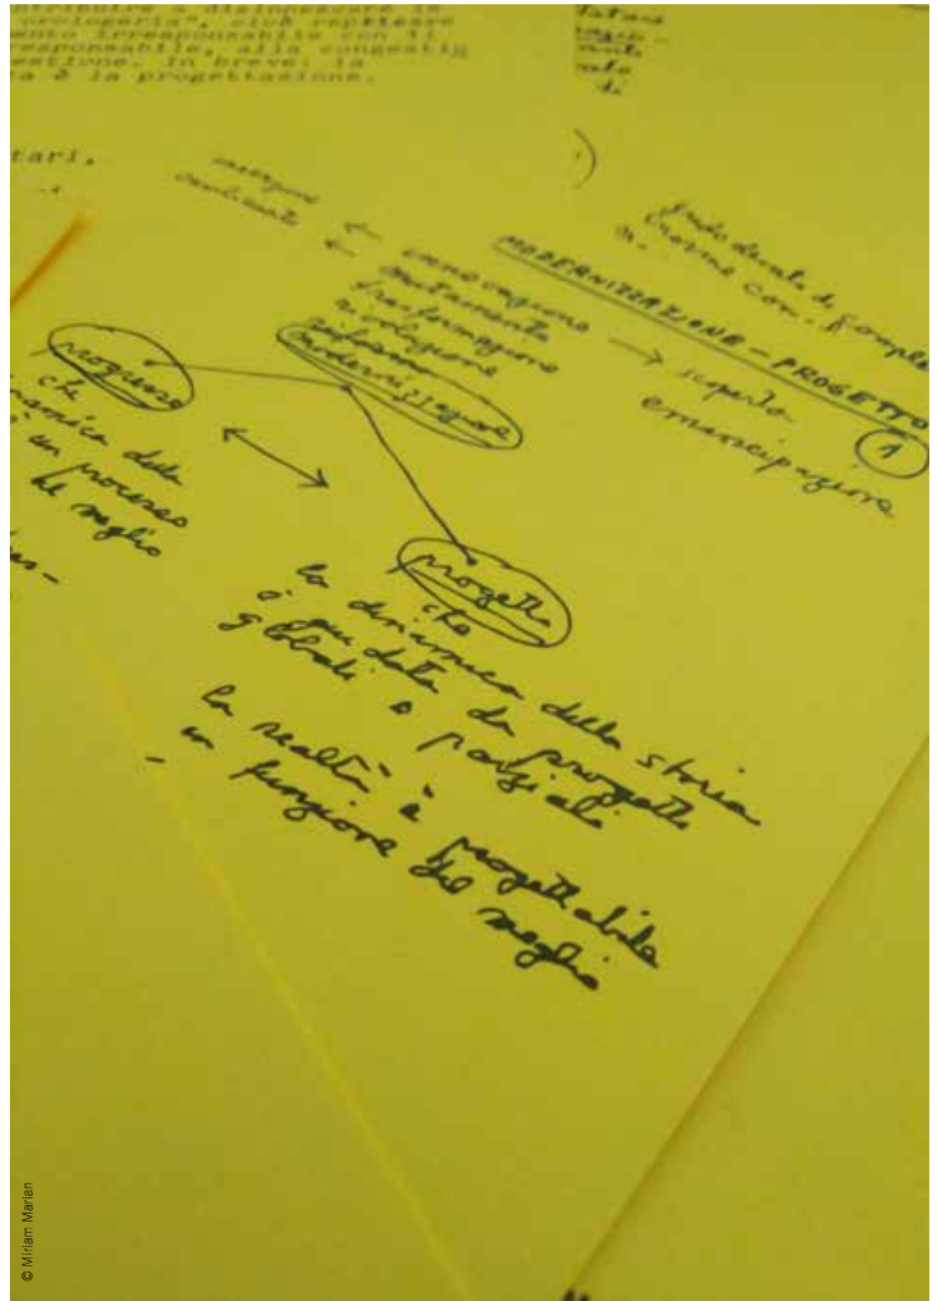 ntribuire a disinnescare la
orologeria", cioè
ento irresponsabile con ti
responsabile, alla congestig
estione. In breve: la
ta è la progettazione.
tari.
di
)
MODERNIZZAZIONE - PROGETTO
1
innovazione
mutamento
trasformazione
rivoluzione
riforma
modernizzazione
→ scoperta
emancipazione
progresso
che
namica della
un processo
meglio
progetto
che
la dinamica della storia
è guidata da progetti
globali o parziali
la realtà è progettabile
in funzione del meglio
-
© Miriam Marian